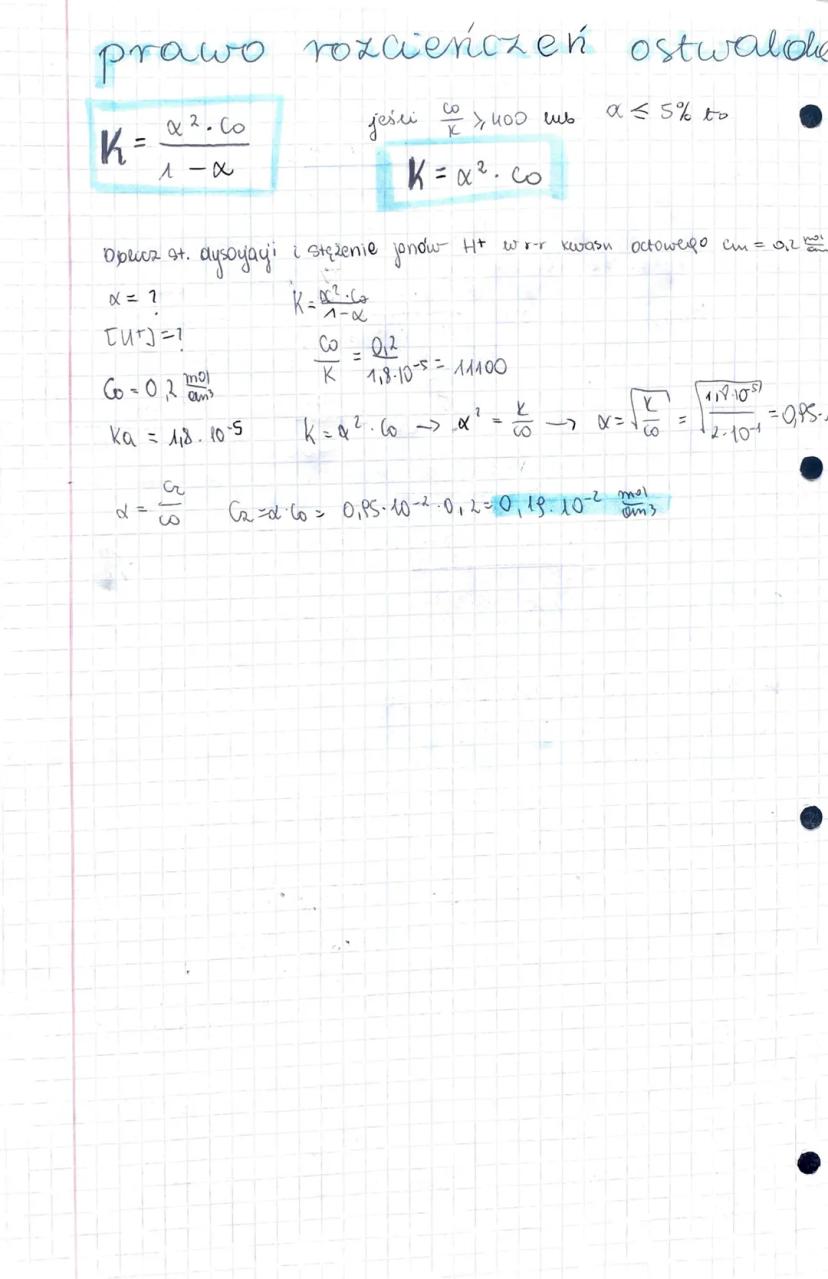 prawo rozcieńczeń ostwalda
K = α² · Co / 1 - α
jeśli Co/K ≥ 400 lub α ≤ 5% to
K = α² · Co
Oblicz st. dysocjacji i stężenie jonów H+ w r-r kwasu octowego cm = 0,2 mol/dm
α = ?
K = α² · Co / 1 - α
[H+] = ?
Co/K = 0,2 / 1,8·10-5 = 11100
Co = 0,2 mol/dm3
Ka = 1,8 · 10-5
K = α² · Co → α² = K/Co → α = √K/Co = √1,8·10-5 / 2·10-1 = 0,95·
α = Cz/Co
Cz = α·Co = 0,95·10-2·0,2 = 0,19·10-2 mol/dm3